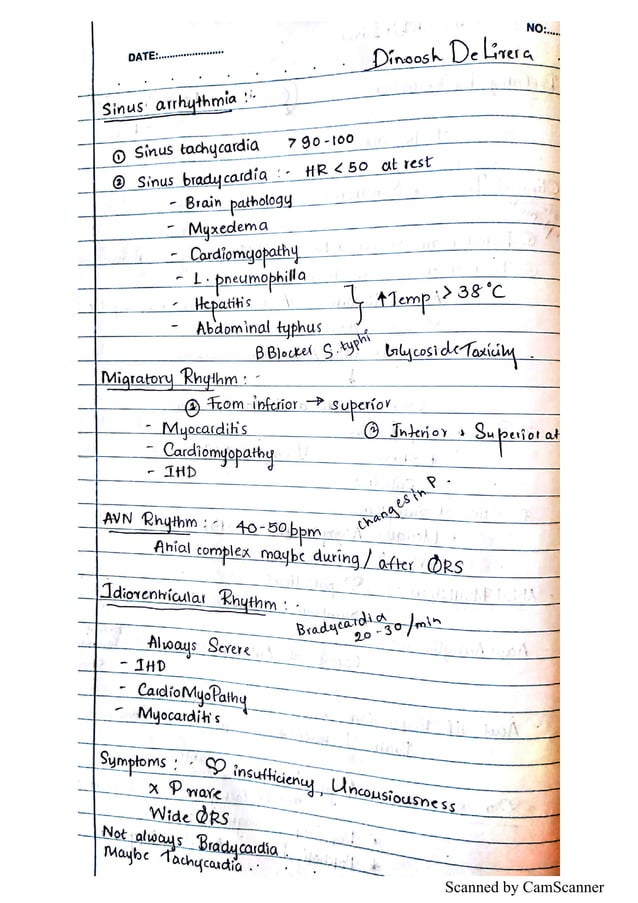 NO:.....
DATE:......................
Dinoosh De Livera
Sinus arrhythmia :-
① Sinus tachycardia > 90-100
② Sinus bradycardia :- HR < 50 at rest
- Brain pathology
- Myxedema
- Cardiomyopathy
- L. pneumophilla
- Hepatitis
- Abdominal typhus
↑Temp > 38 °C
B Blocker S. typhi Glycoside Toxicity.
Migratory Rhythm :-
① From inferior → superior
- Myocarditis
② Inferior , Superior at
- Cardiomyopathy
- IHD
changes in P.
AVN Rhythm :- 40-50 bpm
Atrial complex maybe during / after QRS
Idioventricular Rhythm :-
Bradycardia
20-30/min
Always Severe
- IHD
- CardioMyoPathy
- Myocarditis
Symptoms : ♡ insufficiency, Uncousiousness
x P wave
Wide QRS
Not always Bradycardia.
Maybe Tachycardia.
Scanned by CamScanner